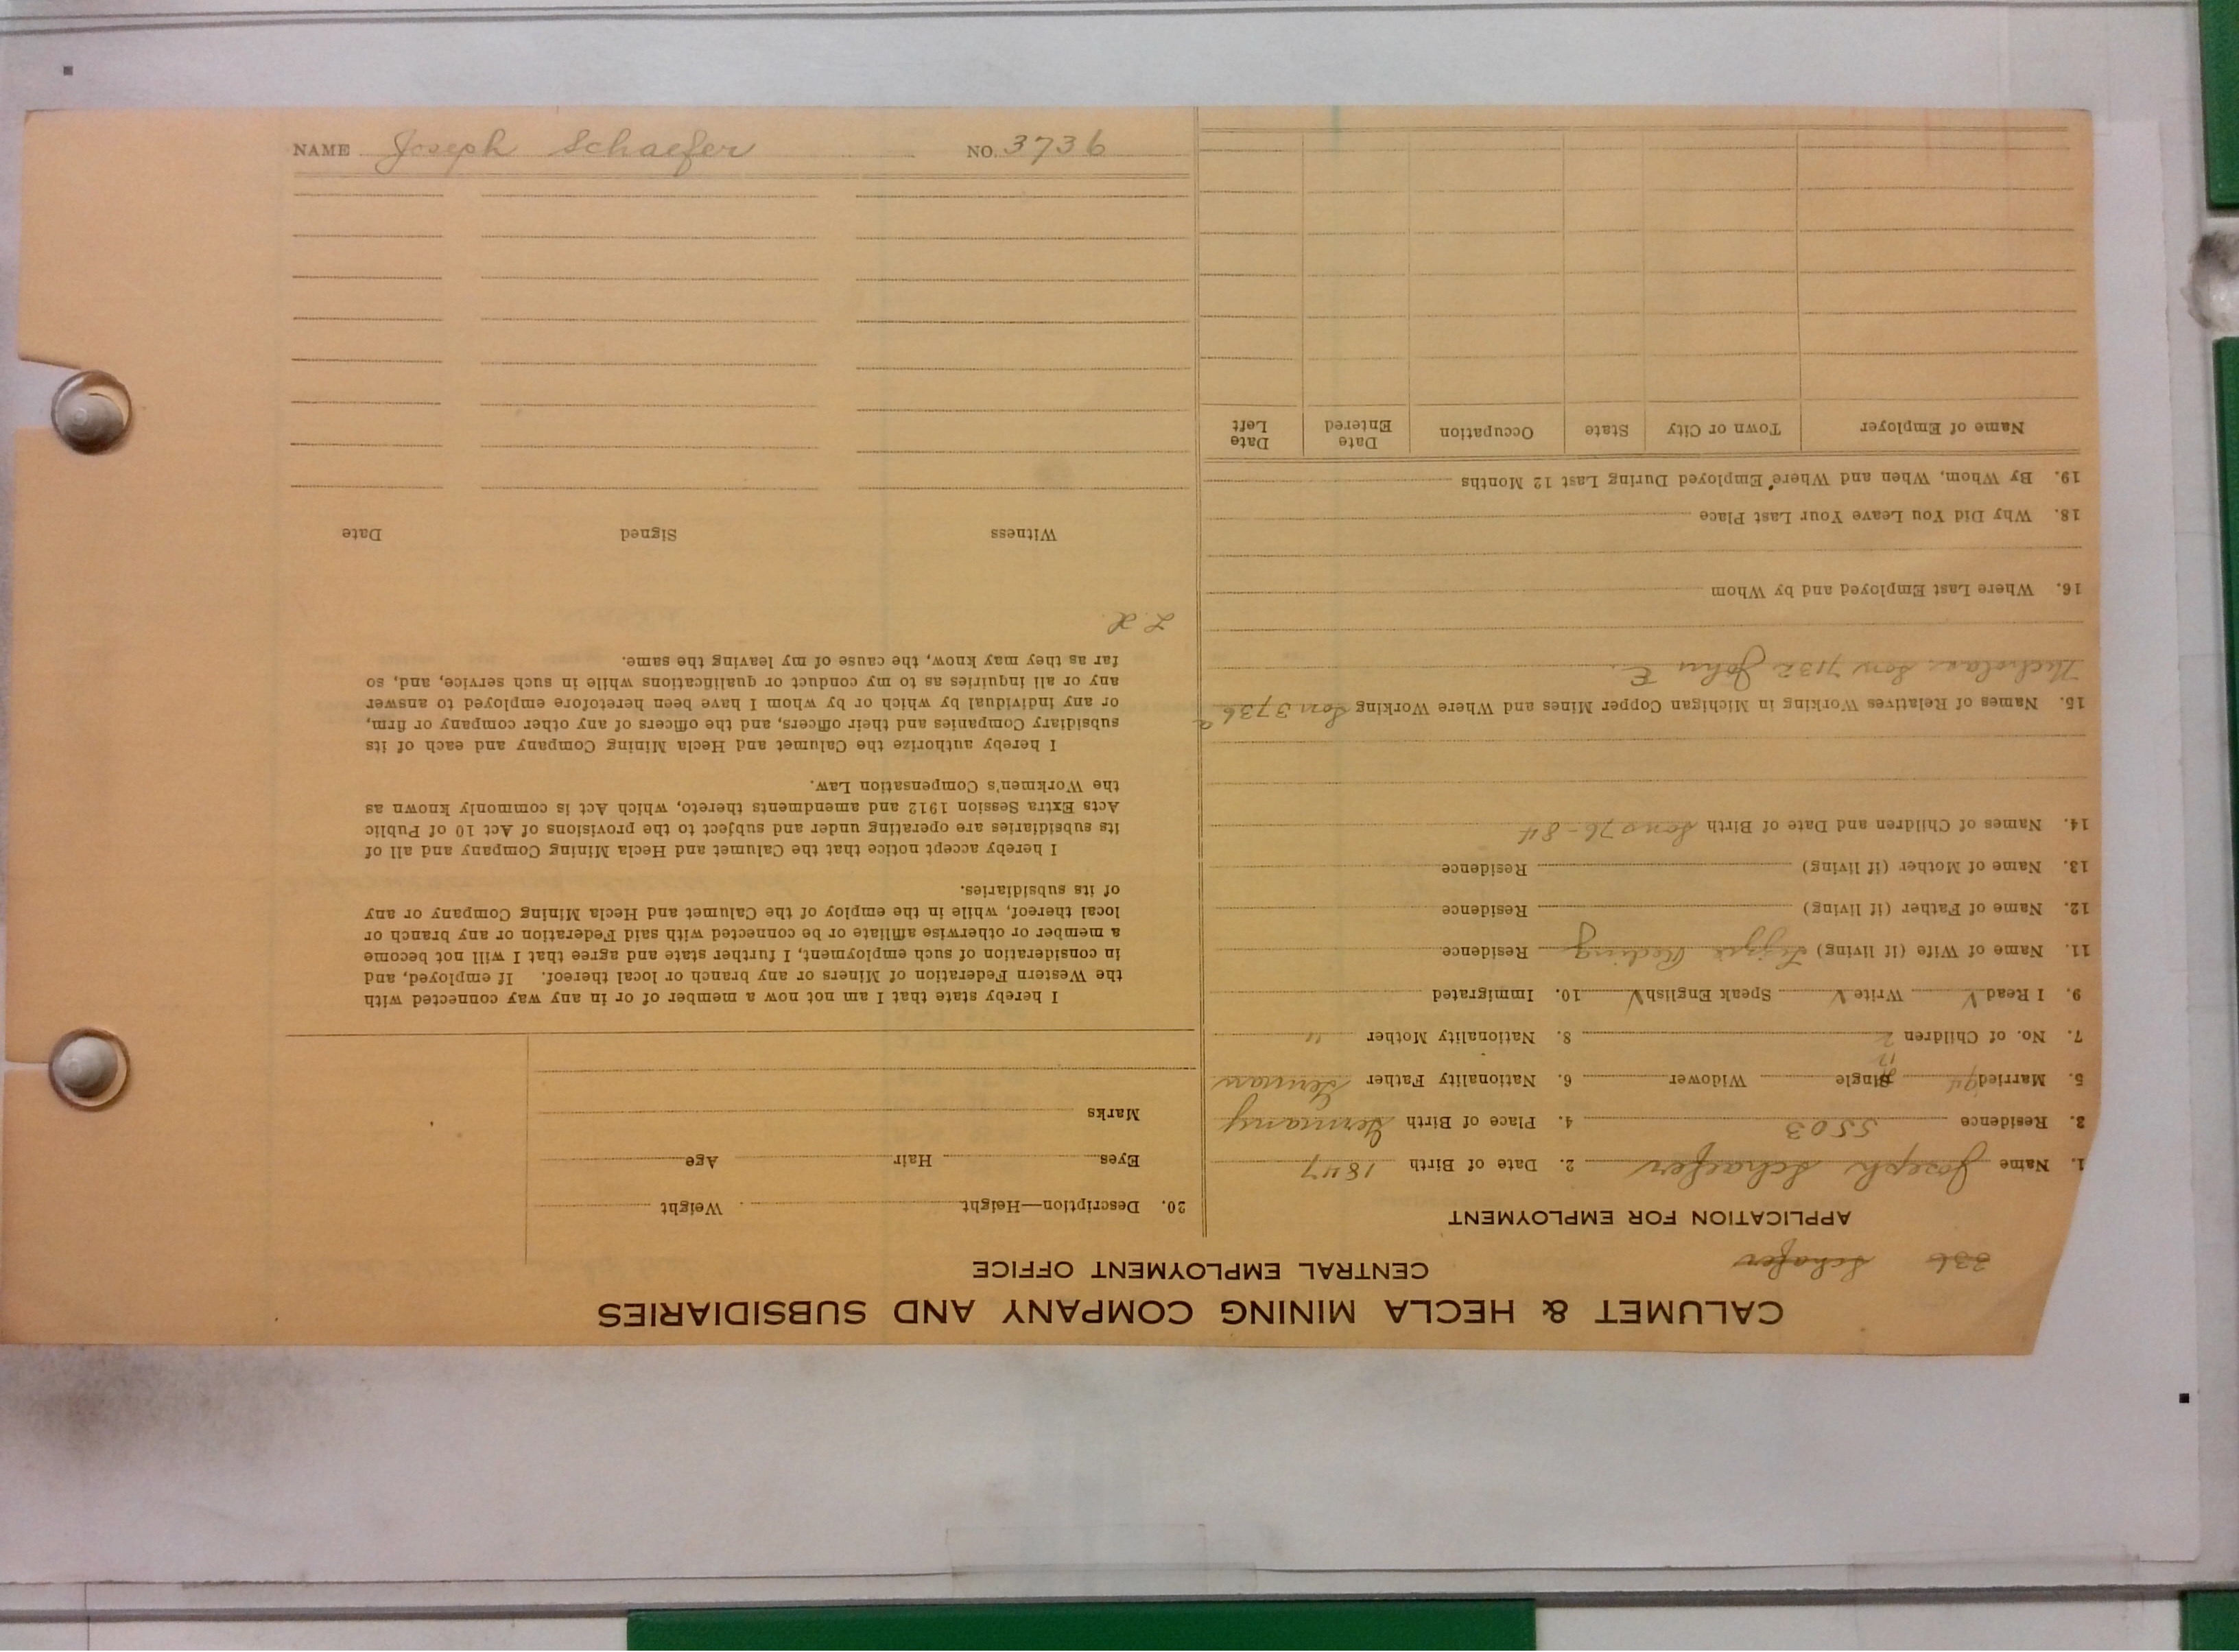 CALUMET & HECLA MINING COMPANY AND SUBSIDIARIES
CENTRAL EMPLOYMENT OFFICE
336 Schafer
APPLICATION FOR EMPLOYMENT
1. Name Joseph Schaefer 2. Date of Birth 1847
3. Residence 5503 4. Place of Birth Germany
5. Married Single Widower 6. Nationality Father German
7. No. of Children 2 8. Nationality Mother "
9. I Read V Write V Speak English V 10. Immigrated
11. Name of Wife (if living) Residence
12. Name of Father (if living) Residence
13. Name of Mother (if living) Residence
14. Names of Children and Date of Birth Sons 76-84
15. Names of Relatives Working in Michigan Copper Mines and Where Working Son 3736 a
Nicholas Son 7132 John E.
16. Where Last Employed and by Whom
18. Why Did You Leave Your Last Place
19. By Whom, When and Where Employed During Last 12 Months
Name of Employer Town or City State Occupation Date Entered Date Left
20. Description—Height Weight
Eyes Hair Age
Marks
I hereby state that I am not now a member of or in any way connected with
the Western Federation of Miners or any branch or local thereof. If employed, and
in consideration of such employment, I further state and agree that I will not become
a member or otherwise affiliate or be connected with said Federation or any branch or
local thereof, while in the employ of the Calumet and Hecla Mining Company or any
of its subsidiaries.
I hereby accept notice that the Calumet and Hecla Mining Company and all of
its subsidiaries are operating under and subject to the provisions of Act 10 of Public
Acts Extra Session 1912 and amendments thereto, which Act is commonly known as
the Workmen's Compensation Law.
I hereby authorize the Calumet and Hecla Mining Company and each of its
subsidiary Companies and their officers, and the officers of any other company or firm,
or any individual by which or by whom I have been heretofore employed to answer
any or all inquiries as to my conduct or qualifications while in such service, and, so
far as they may know, the cause of my leaving the same.
Witness Signed Date
NAME Joseph Schaefer NO. 3736